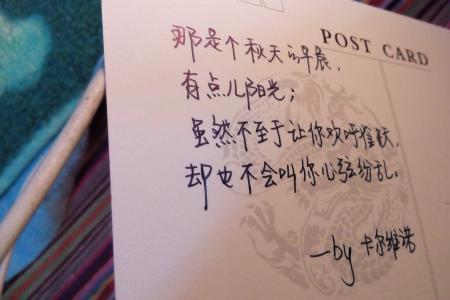 POST CARD
那是个秋天的早晨，
有点儿阳光；
虽然不至于让你欢呼雀跃，
却也不会叫你心弦纷乱。
—by 卡尔维诺